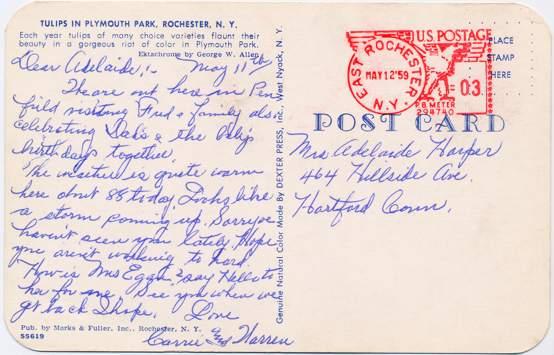 TULIPS IN PLYMOUTH PARK, ROCHESTER, N. Y.
Each year tulips of many choice varieties flaunt their
beauty in a gorgeous riot of color in Plymouth Park.
Ektachrome by George W. Allen
Dear Adelaide; - May 11th
We are out here in Pen
field visiting Fred & family also
celebrating & the
birthdays together.
The weather is quite warm
here about 85 today. Looks like
a storm coming up. Sorry we
haven't seen you lately. Hope
you aren't working to hard.
How is Mrs Egan? Say Hello to
her for me. See you when we
get back I hope. Love
Carrie and Warren
Pub. by Marks & Fuller, Inc., Rochester, N. Y.
55619
Genuine Natural Color Made By DEXTER PRESS, Inc., West Nyack, N. Y.
EAST ROCHESTER
N.Y.
MAY 12 '59
U.S. POSTAGE
03
P.B. METER
298740
PLACE
STAMP
HERE
POST CARD
Mrs Adelaide Harper
464 Hillside Ave.
Hartford Conn.